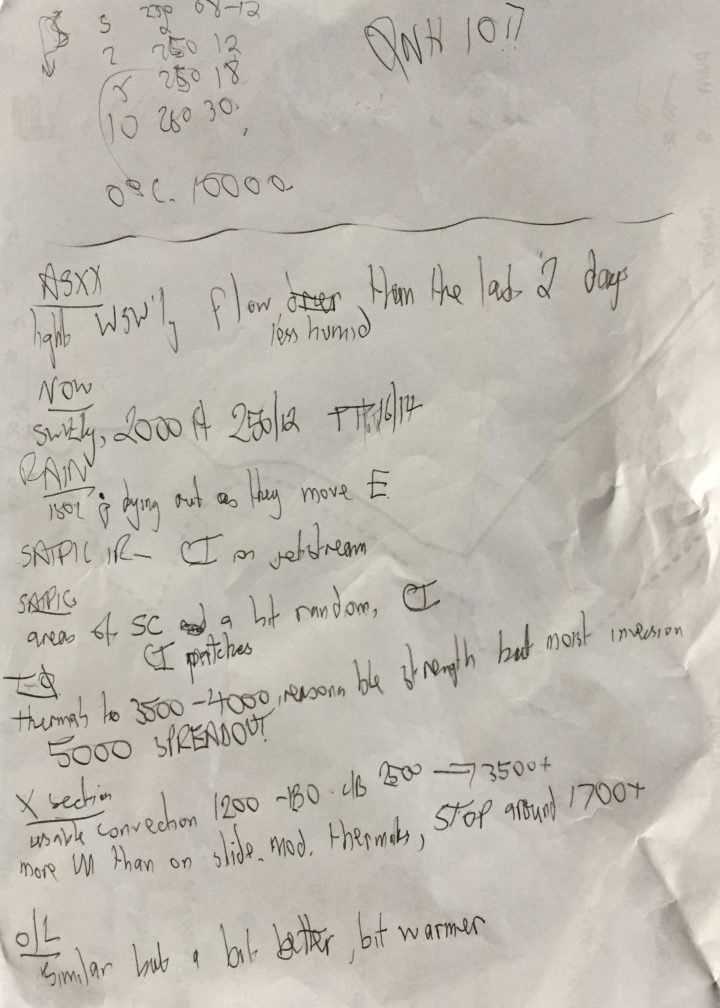 S 08-12
2 250 12
QNH 1017
5 250 18
10 260 30
0°C. 10000
ASXX
light WSW'ly flow, than the last 2 days
less humid
NOW
SW'rly, 2000 ft 250/12 TT 16/14
RAIN
dying out as they move E
SATPIC IR- CI on jetstream
SATPIC
areas of SC a bit random, CI
CI patches
TΦ
thermals to 3500-4000, reasonable strength but moist inversion
5000 SPREADOUT
X section
usable convection 1200 - c/B 2500 → 3500+
more than on slide. mod. thermals, STOP around 1700+
O/L
Similar but a bit better, bit warmer